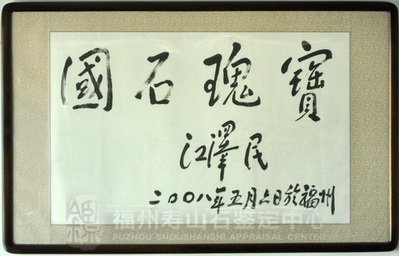 國石瑰寶
江澤民
二〇〇八年五月六日於福州
福州寿山石鉴定中心
FUZHOU SHOUSHANSHI APPRAISAL CENTER